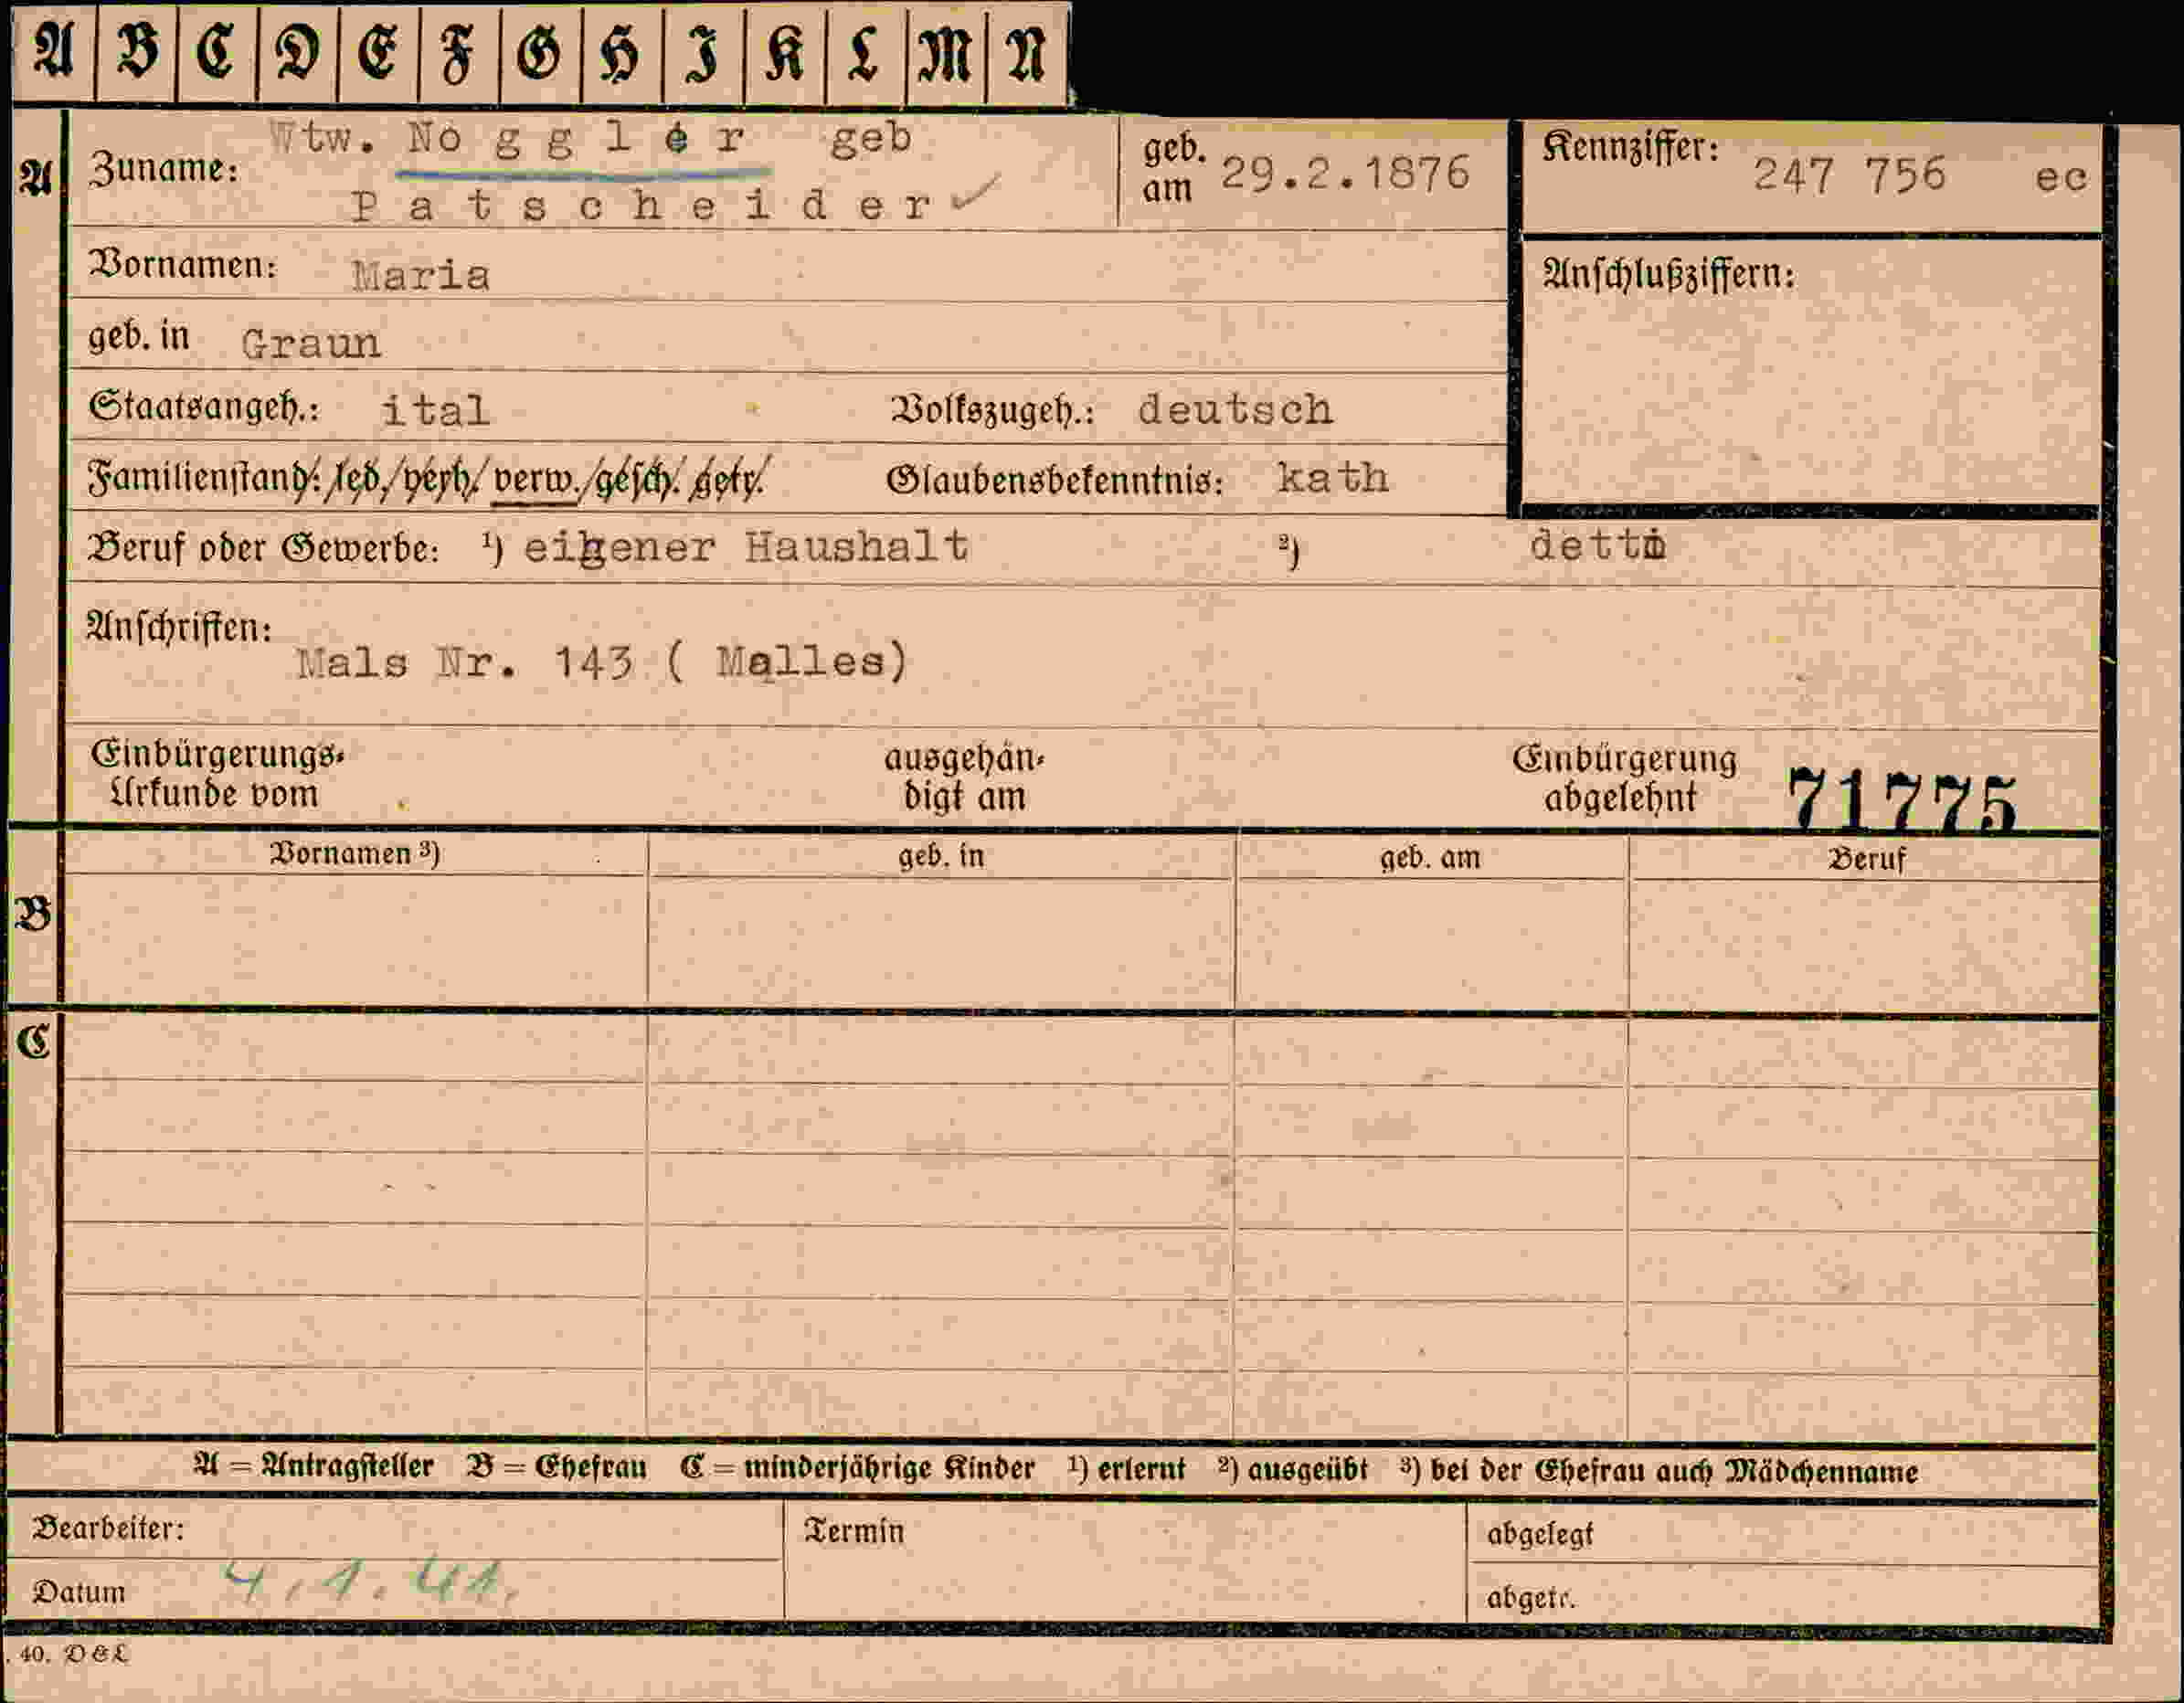 A B C D E F G H I K L M N
A Zuname: Wtw. No g g l e r geb
P a t s c h e i d e r
geb. am 29.2.1876
Kennziffer: 247 756 ec
Vornamen: Maria
Anschlußziffern:
geb. in Graun
Staatsangeh.: ital Volkszugeh.: deutsch
Familienstand: led./verh./verw./gesch. getr. Glaubensbekenntnis: kath
Beruf oder Gewerbe: ¹) eigener Haushalt ²) detto
Anschriften:
Mals Nr. 143 ( Malles)
Einbürgerungs-
Urkunde vom
ausgehän-
digt am
Einbürgerung
abgelehnt
71775
Vornamen ³) geb. in geb. am Beruf
B
C
A = Antragsteller B = Ehefrau C = minderjährige Kinder ¹) erlernt ²) ausgeübt ³) bei der Ehefrau auch Mädchenname
Bearbeiter: Termin abgelegt
Datum 4.1.41. abgetr.
. 40. D&L